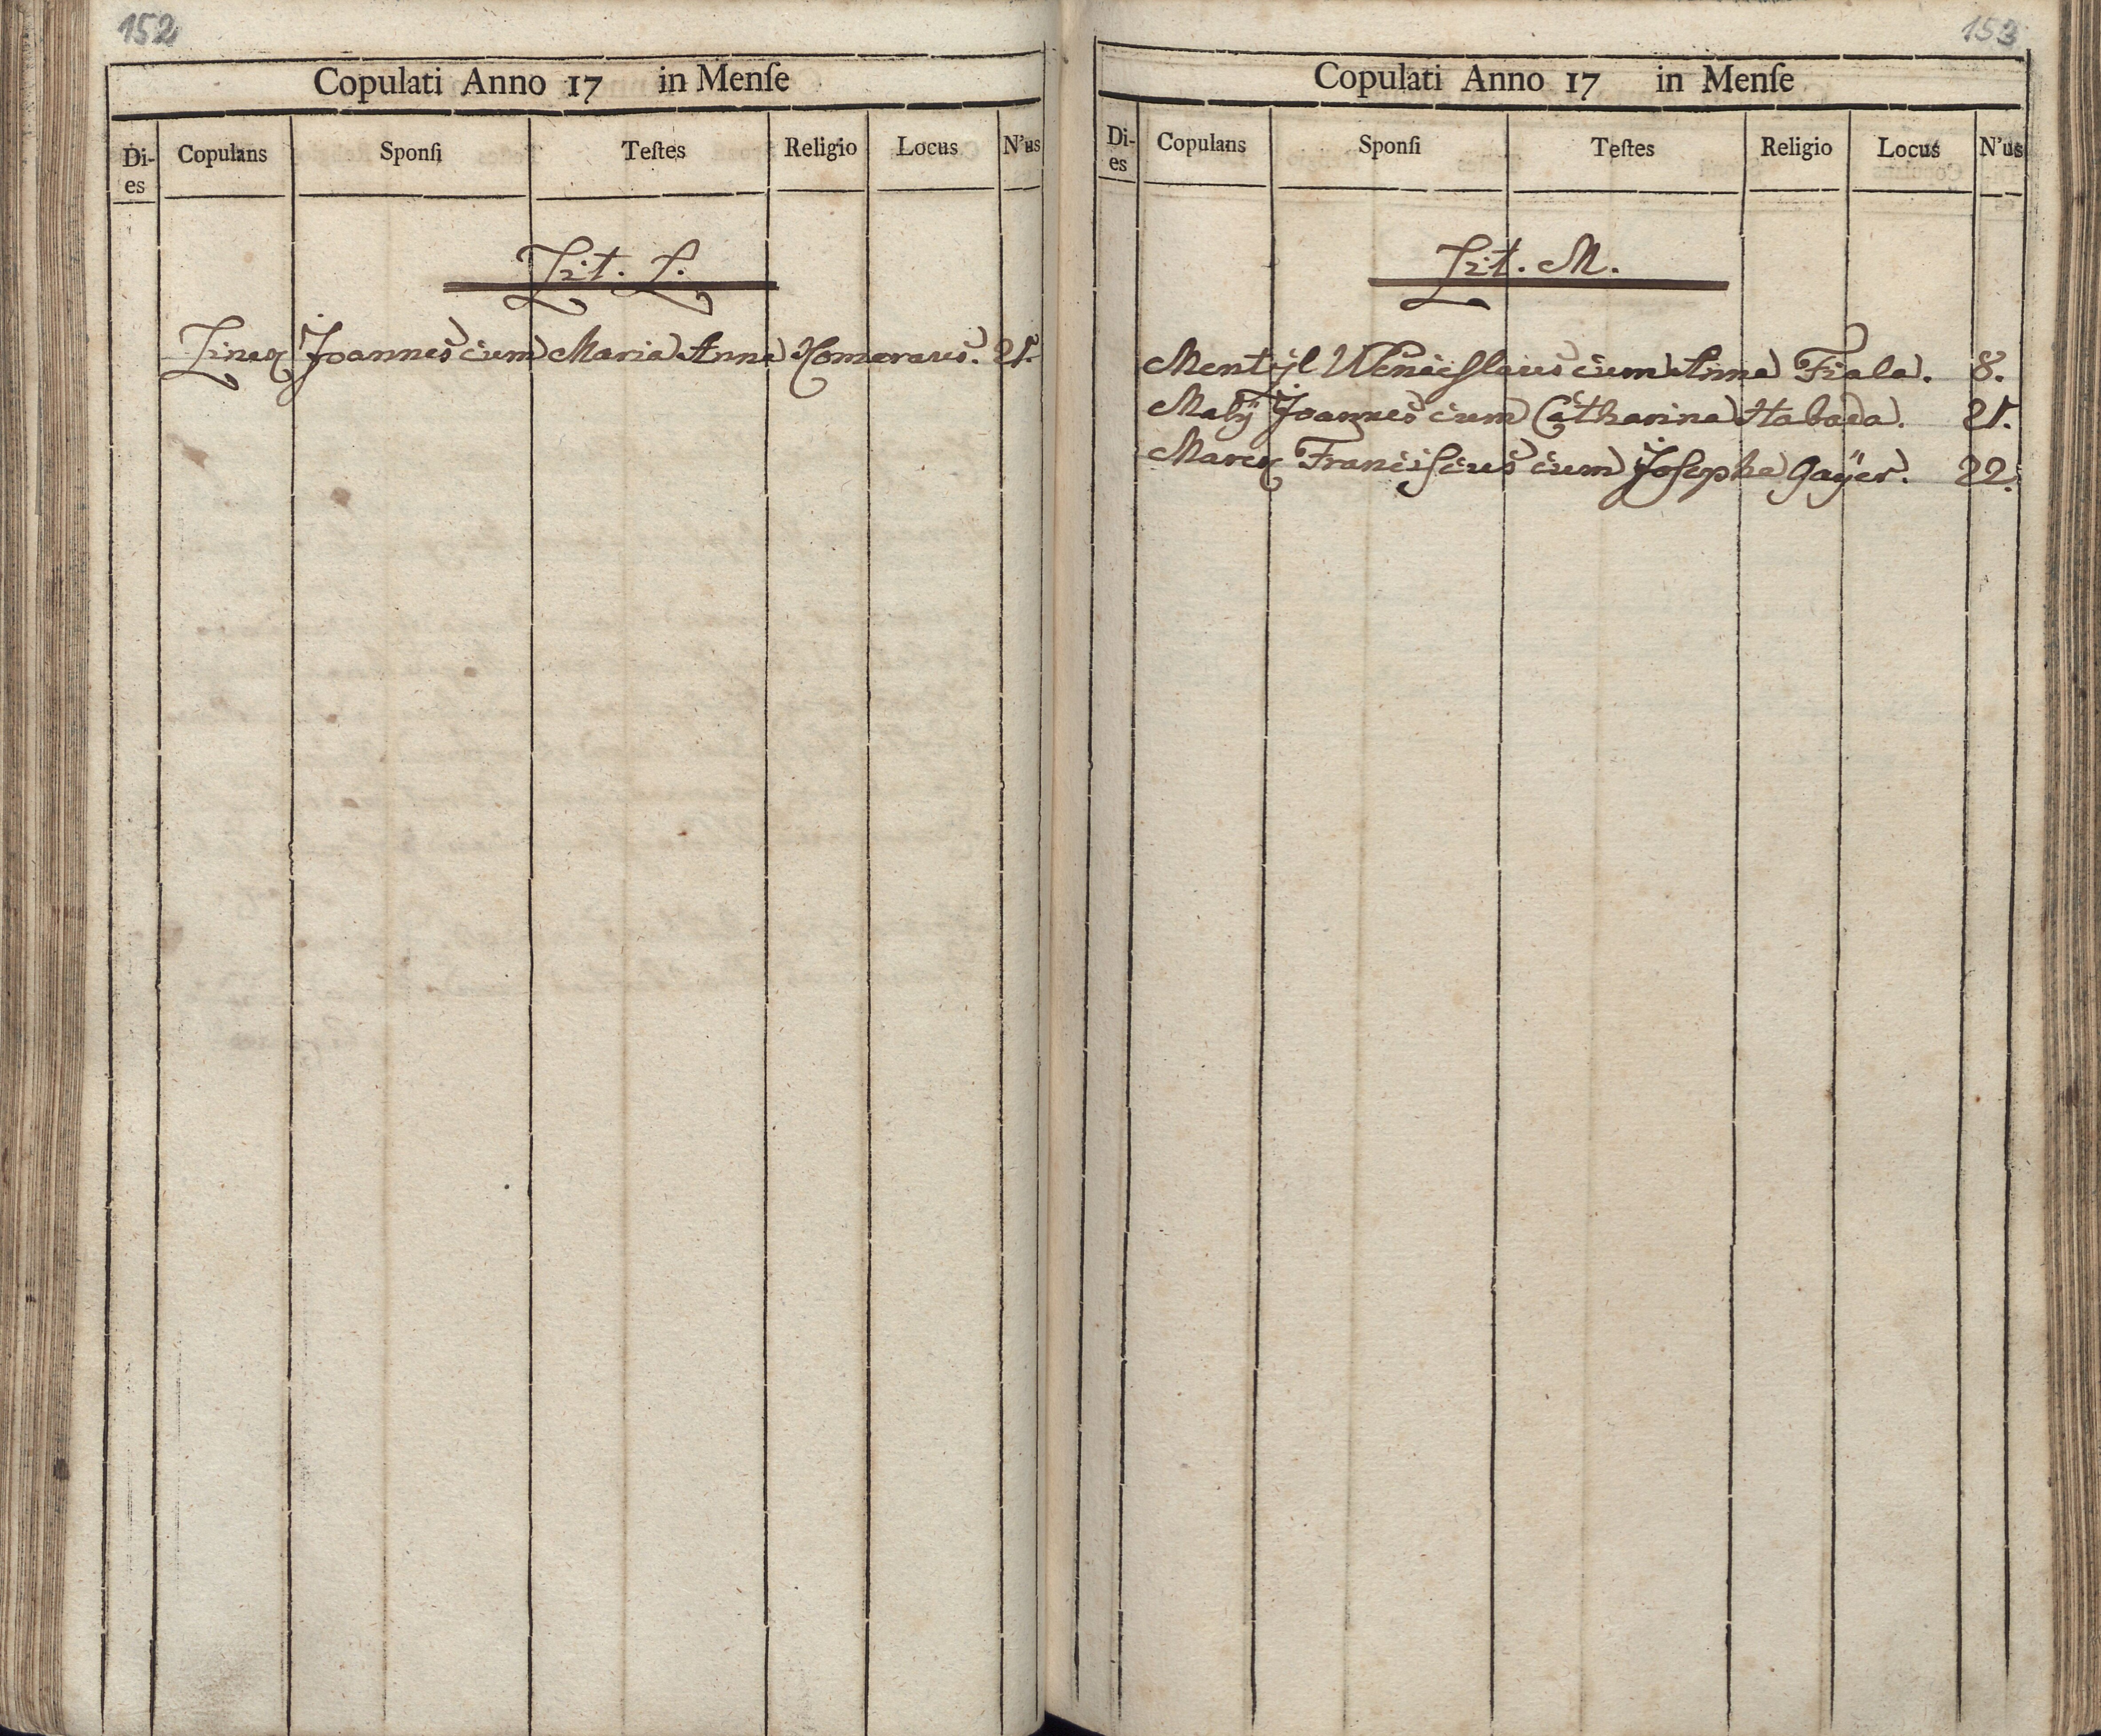 152
Copulati Anno 17 in Menſe
Di-es Copulans Sponſi Teſtes Religio Locus N'us
Lit. L.
Joannes cum Maria Anna 21.
153
Copulati Anno 17 in Menſe
Di-es Copulans Sponſi Teſtes Religio Locus N'us
Lit. M.
Mentijl Wenceslaus cum Anna Fiala. 8.
Malÿ Joannes cum Catharina 21.
Franciscus cum Josepha Gaÿer. 22.